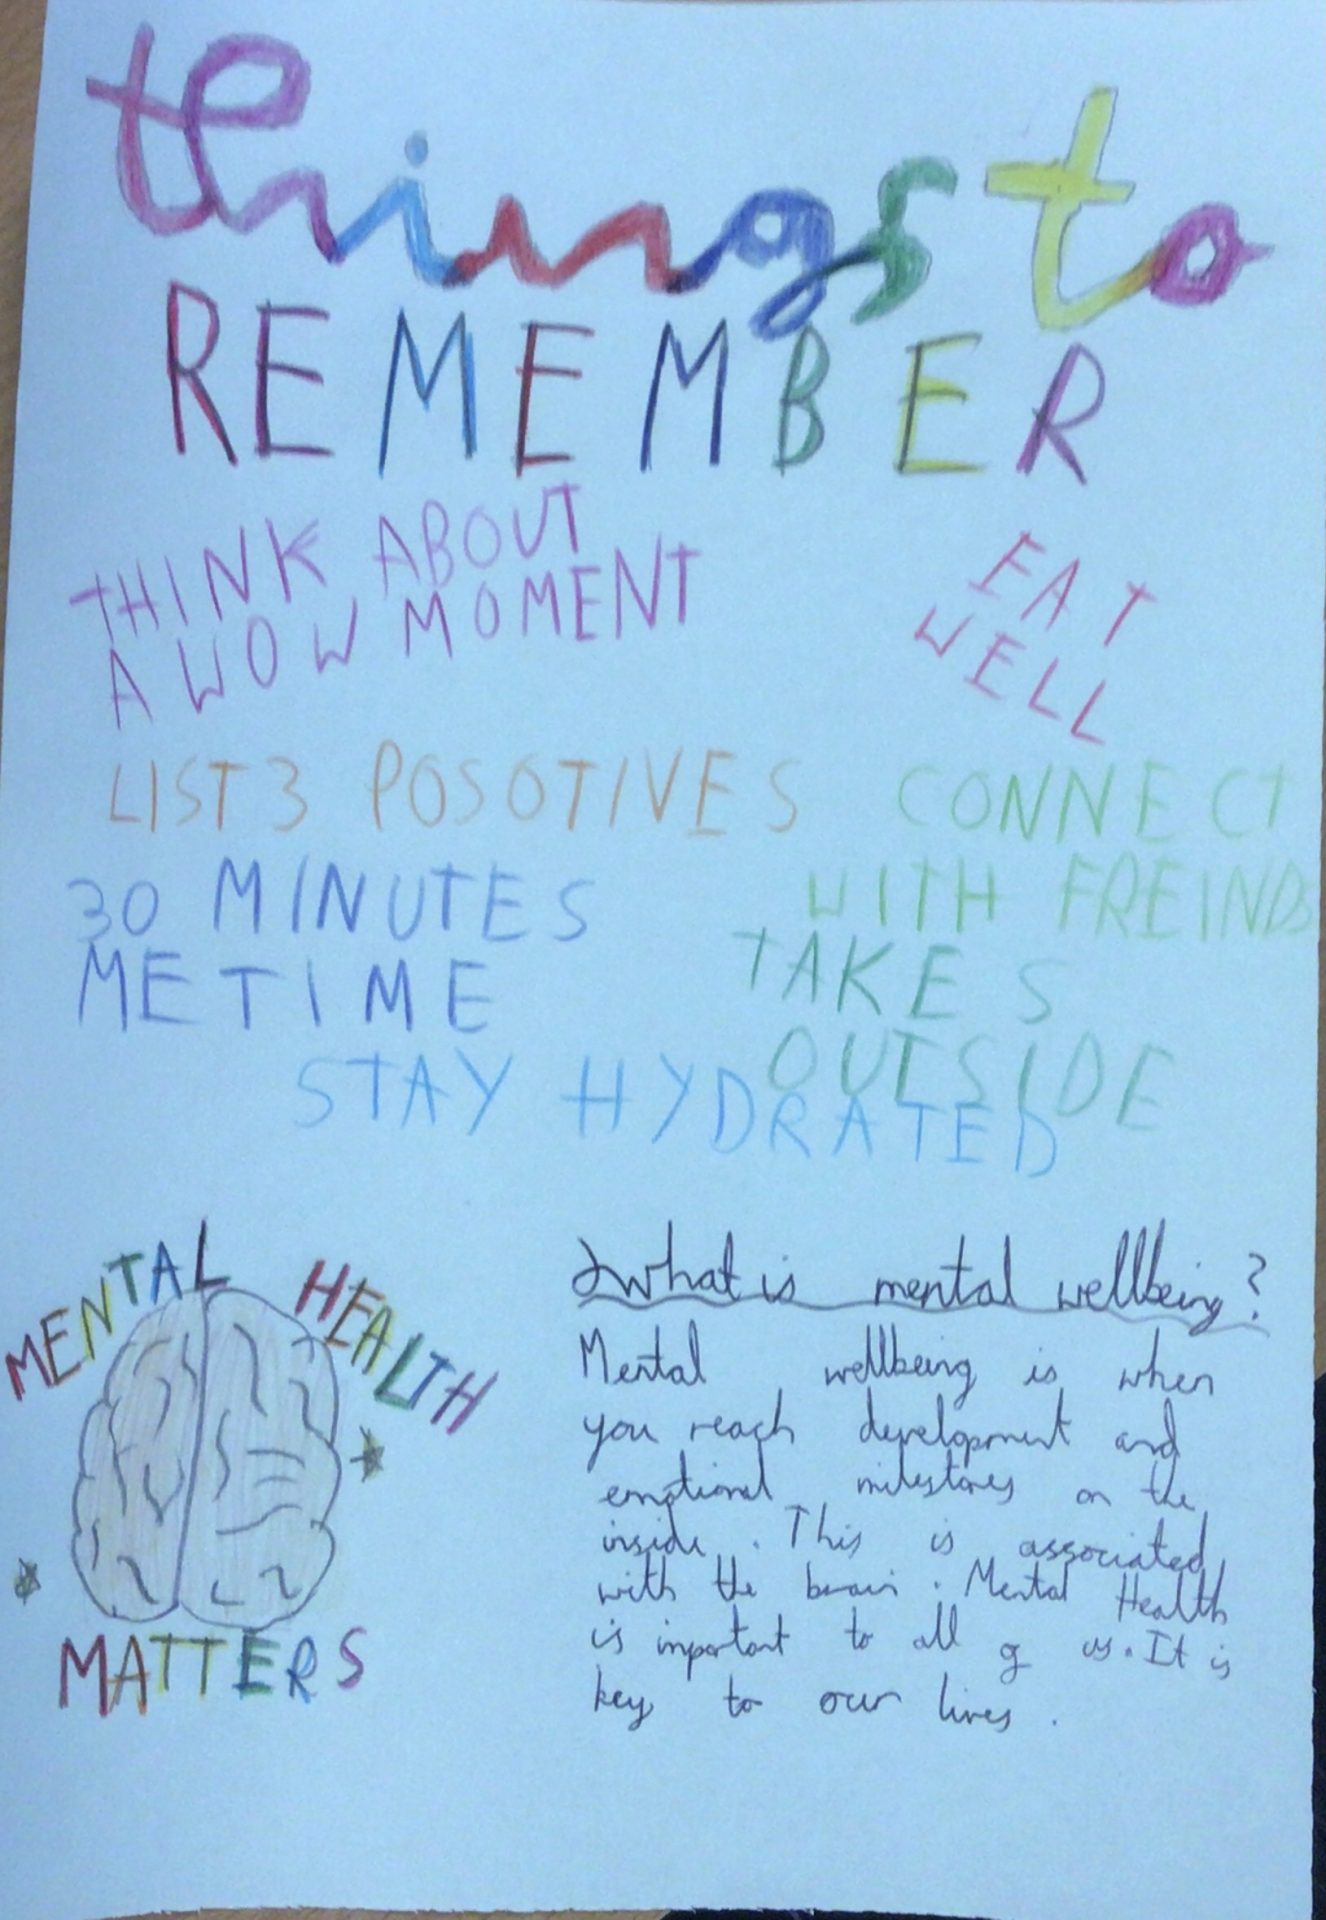 things to
REMEMBER
THINK ABOUT
A WOW MOMENT
EAT
WELL
LIST 3 POSOTIVES
CONNECT
WITH FREINDS
30 MINUTES
ME TIME
TAKE 5
OUTSIDE
STAY HYDRATED
MENTAL HEALTH
MATTERS
What is mental wellbeing?
Mental wellbeing is when
you reach development and
emotional milestones on the
inside. This is associated
with the brain. Mental Health
is important to all of us. It is
key to our lives.